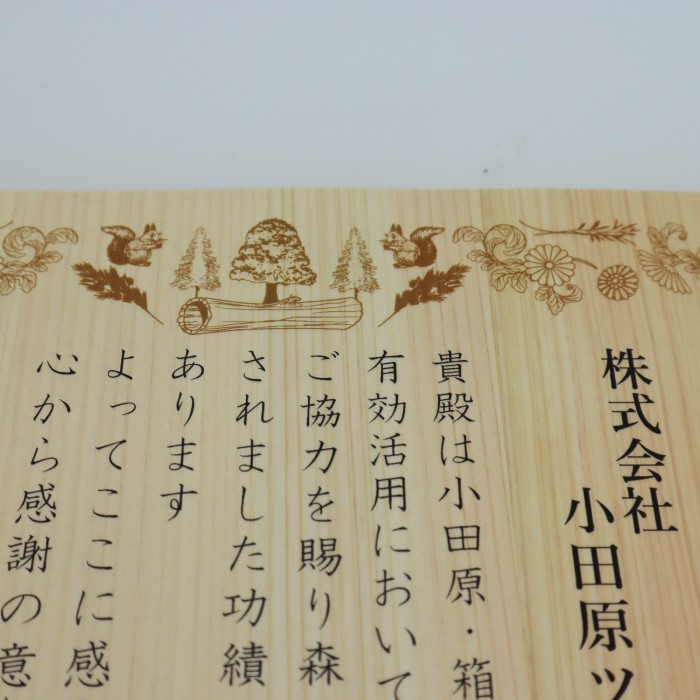 株式会社
小田原ツ
貴殿は小田原・箱
有効活用において
ご協力を賜り森
されました功績
あります
よってここに感
心から感謝の意